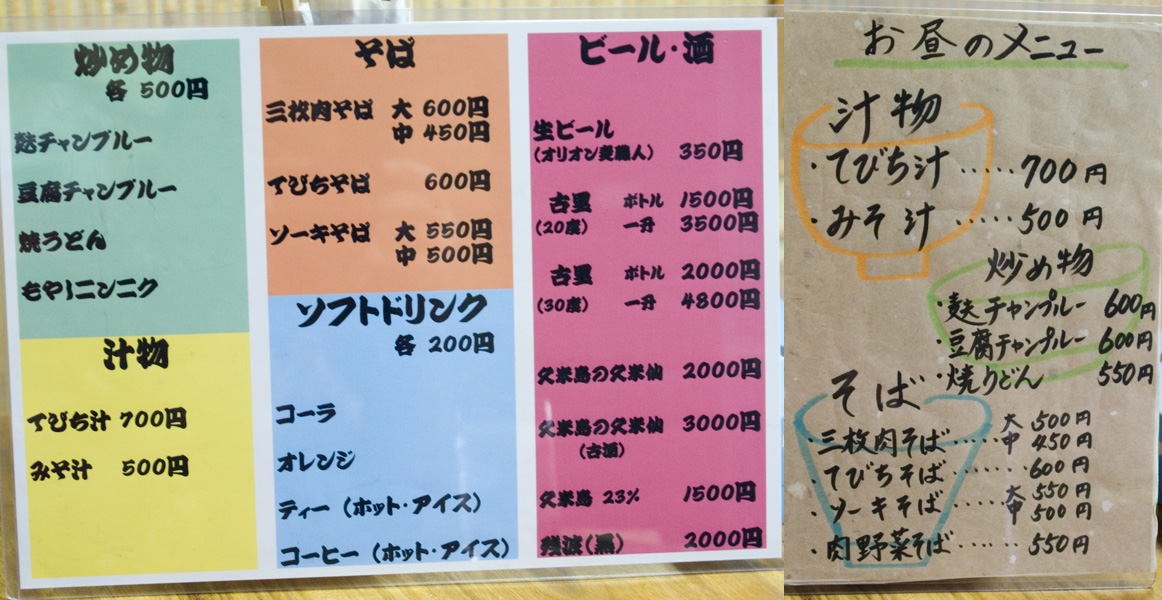 炒め物
各 500円
麩チャンプルー
豆腐チャンプルー
焼うどん
もやしニンニク
汁物
てびち汁 700円
みそ汁 500円
そば
三枚肉そば 大 600円
中 450円
てびちそば 600円
ソーキそば 大 550円
中 500円
ソフトドリンク
各 200円
コーラ
オレンジ
ティー（ホット・アイス）
コーヒー（ホット・アイス）
ビール・酒
生ビール
（オリオン麦職人） 350円
古里 ボトル 1500円
（20度） 一升 3500円
古里 ボトル 2000円
（30度） 一升 4800円
久米島の久米仙 2000円
久米島の久米仙 3000円
（古酒）
久米島 23% 1500円
残波（黒） 2000円
お昼のメニュー
汁物
・てびち汁 ・・・・・ 700円
・みそ汁 ・・・・・ 500円
炒め物
・麩チャンプルー 600円
・豆腐チャンプルー 600円
・焼うどん 550円
そば
・三枚肉そば ・・・・・ 大 500円
中 450円
・てびちそば ・・・・・・・・ 600円
・ソーキそば ・・・・・ 大 550円
中 500円
・肉野菜そば ・・・・・・ 550円